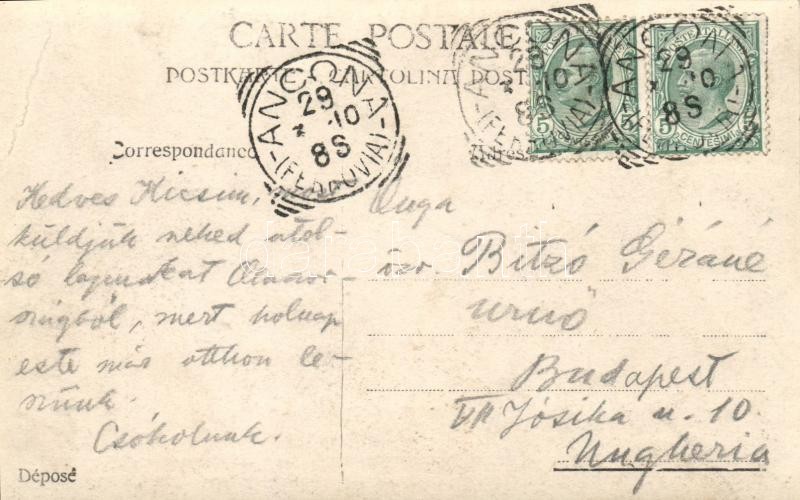 CARTE POSTALE
POSTKARTE - CARTOLINA POST
ANCONA
29
10
8S
(FERROVIA)
ANCONA
29
10
8S
(FERROVIA)
ANCONA
29
10
8S
POSTE ITALIANE
5 CENTESIMI 5
Correspondance
Adres
Kedves Kicsim,
küldjük neked utol-
só lapunkat Olaszor-
szágból, mert holnap
este már otthon le-
szünk.
Csókolunk.
Déposé
özv. Bitzó Gézáné
urnő
Budapest
VII Jósika u. 10.
Ungheria